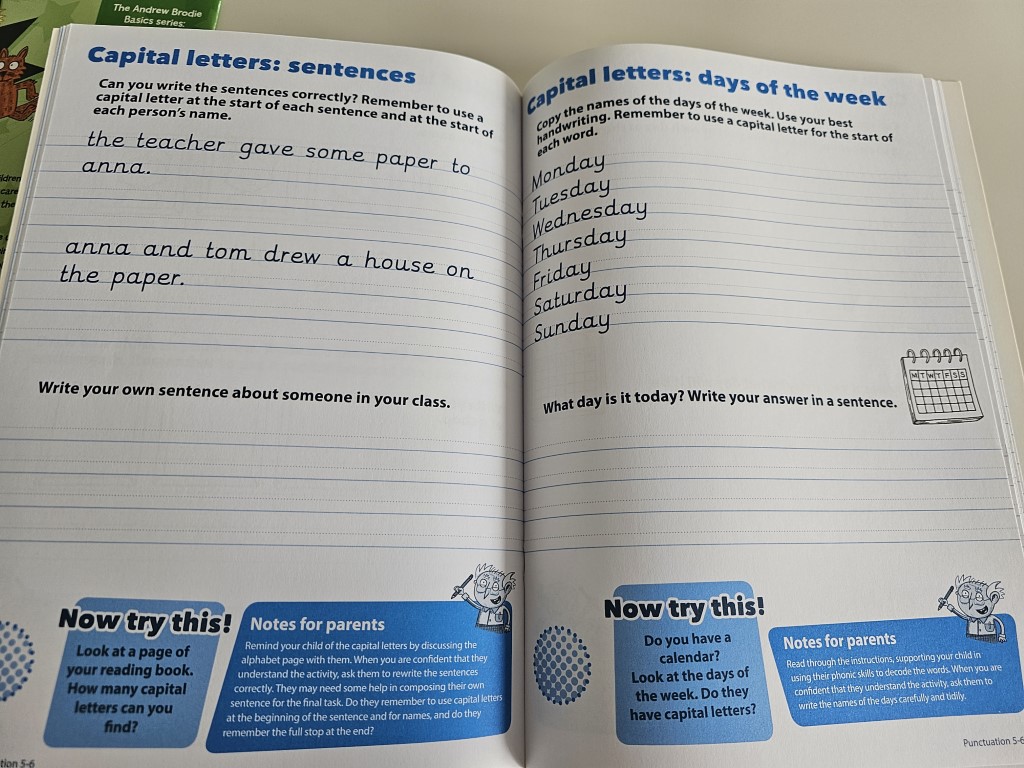 The Andrew Brodie
Basics series:
Capital letters: sentences
Can you write the sentences correctly? Remember to use a
capital letter at the start of each sentence and at the start of
each person's name.
the teacher gave some paper to
anna.
anna and tom drew a house on
the paper.
Write your own sentence about someone in your class.
Now try this!
Look at a page of
your reading book.
How many capital
letters can you
find?
Notes for parents
Remind your child of the capital letters by discussing the
alphabet page with them. When you are confident that they
understand the activity, ask them to rewrite the sentences
correctly. They may need some help in composing their own
sentence for the final task. Do they remember to use capital letters
at the beginning of the sentence and for names, and do they
remember the full stop at the end?
Capital letters: days of the week
Copy the names of the days of the week. Use your best
handwriting. Remember to use a capital letter for the start of
each word.
Monday
Tuesday
Wednesday
Thursday
Friday
Saturday
Sunday
M T W T F S S
What day is it today? Write your answer in a sentence.
Now try this!
Do you have a
calendar?
Look at the days of
the week. Do they
have capital letters?
Notes for parents
Read through the instructions, supporting your child in
using their phonic skills to decode the words. When you are
confident that they understand the activity, ask them to
write the names of the days carefully and tidily.
Punctuation 5-6